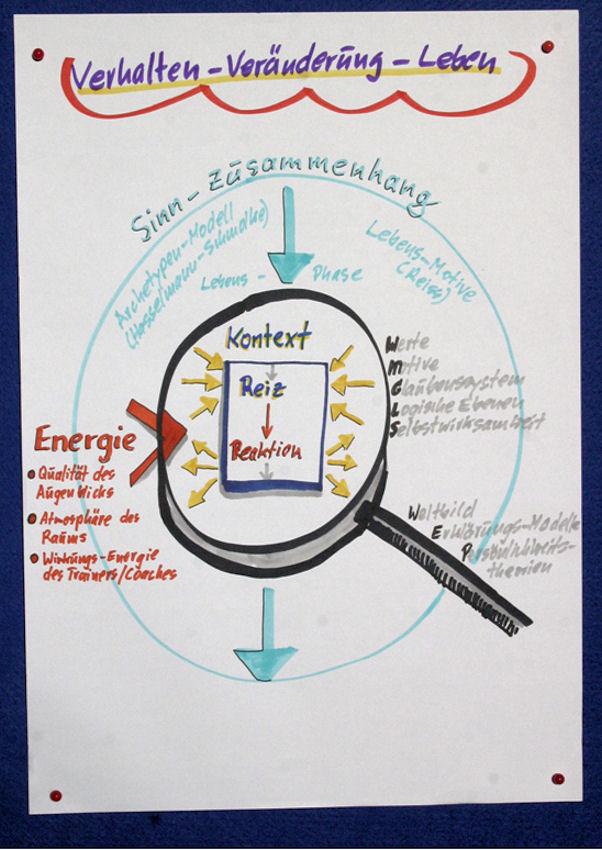 Verhalten - Veränderung - Leben
Sinn - Zusammenhang
Archetypen-Modell
(Hasselmann-Schmolke)
Lebens-Motive
(Reiss)
Lebens - Phase
Kontext
Reiz
Reaktion
Werte
Motive
Glaubenssystem
Logische Ebenen
Selbstwirksamkeit
Energie
Qualität des
Augenblicks
Atmosphäre des
Raums
Wirkungs-Energie
des Trainers/Coaches
Weltbild
Erklärungs-Modelle
Persönlichkeits-
theorien